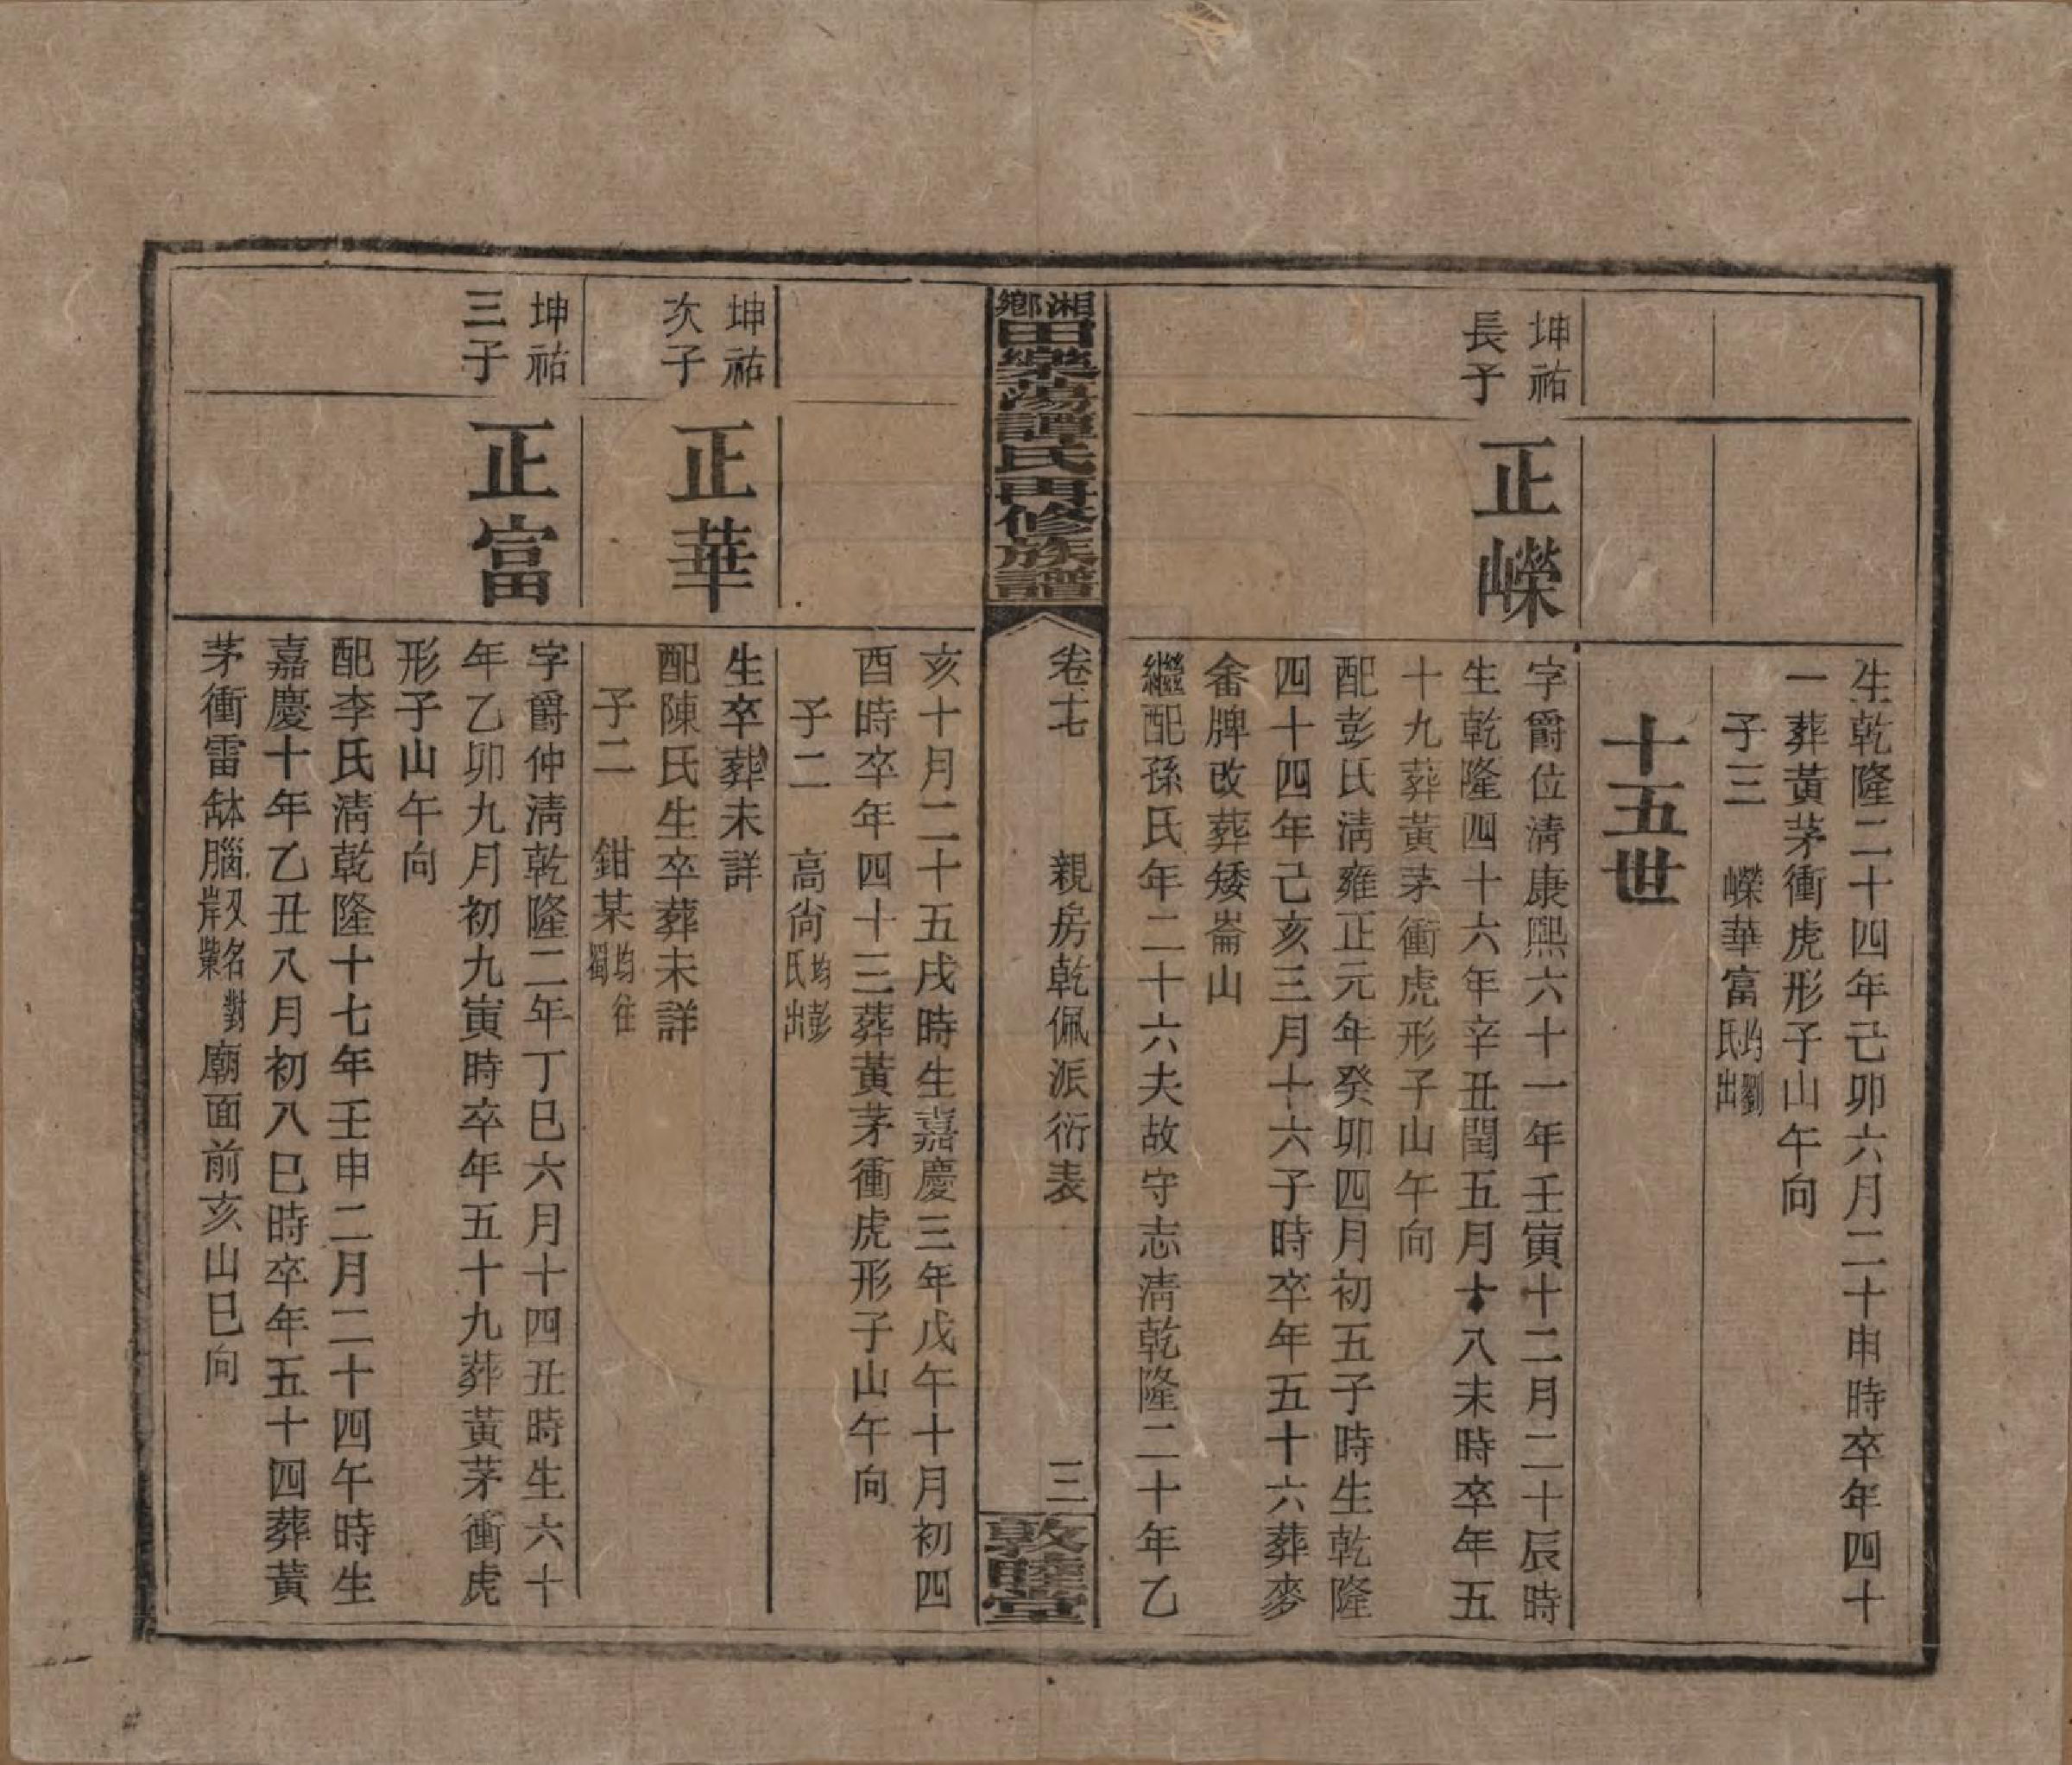 生乾隆二十四年己卯六月二十申時卒年四十
一葬黃茅衝虎形子山午向
子三　嶸華富均劉氏出
十五世
坤祐
長子
正嶸
字爵位淸康熙六十一年壬寅十二月二十辰時
生乾隆四十六年辛丑閏五月十八未時卒年五
十九葬黃茅衝虎形子山午向
配彭氏淸雍正元年癸卯四月初五子時生乾隆
四十四年己亥三月十六子時卒年五十六葬麥
畬牌改葬矮崙山
繼配孫氏年二十六夫故守志淸乾隆二十年乙
湘鄉田樂蕩譚氏再修族譜
卷七　親房乾佩派衍表　三
敦睦堂
亥十月二十五戌時生嘉慶三年戊午十月初四
酉時卒年四十三葬黃茅衝虎形子山午向
子二　高尙均彭氏出
坤祐
次子
正華
生卒葬未詳
配陳氏生卒葬未詳
子二　鉗某均往蜀
坤祐
三子
正富
字爵仲淸乾隆二年丁巳六月十四丑時生六十
年乙卯九月初九寅時卒年五十九葬黃茅衝虎
形子山午向
配李氏淸乾隆十七年壬申二月二十四午時生
嘉慶十年乙丑八月初八巳時卒年五十四葬黃
茅衝雷缽腦又名對岸業廟面前亥山巳向